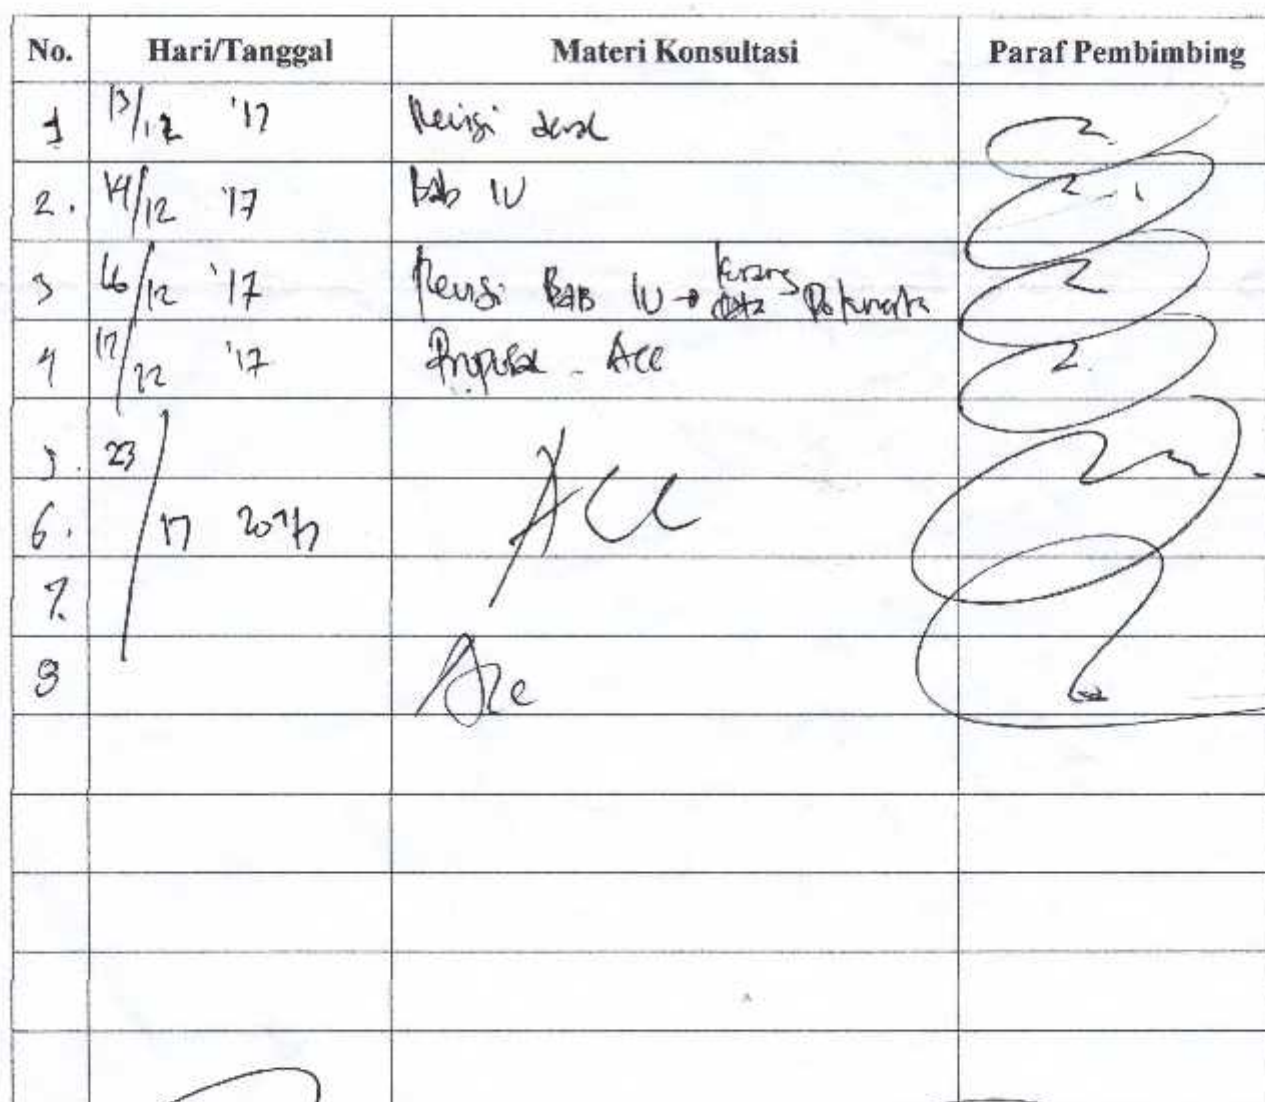 No. Hari/Tanggal Materi Konsultasi Paraf Pembimbing
1 13/12 '17 Revisi
2. 14/12 '17 Bab IV
3 16/12 '17 Revisi Bab IV → kurang data
4 '17 Proposal - Acc
5. 23
6. 17 Acc
7.
8 Acc